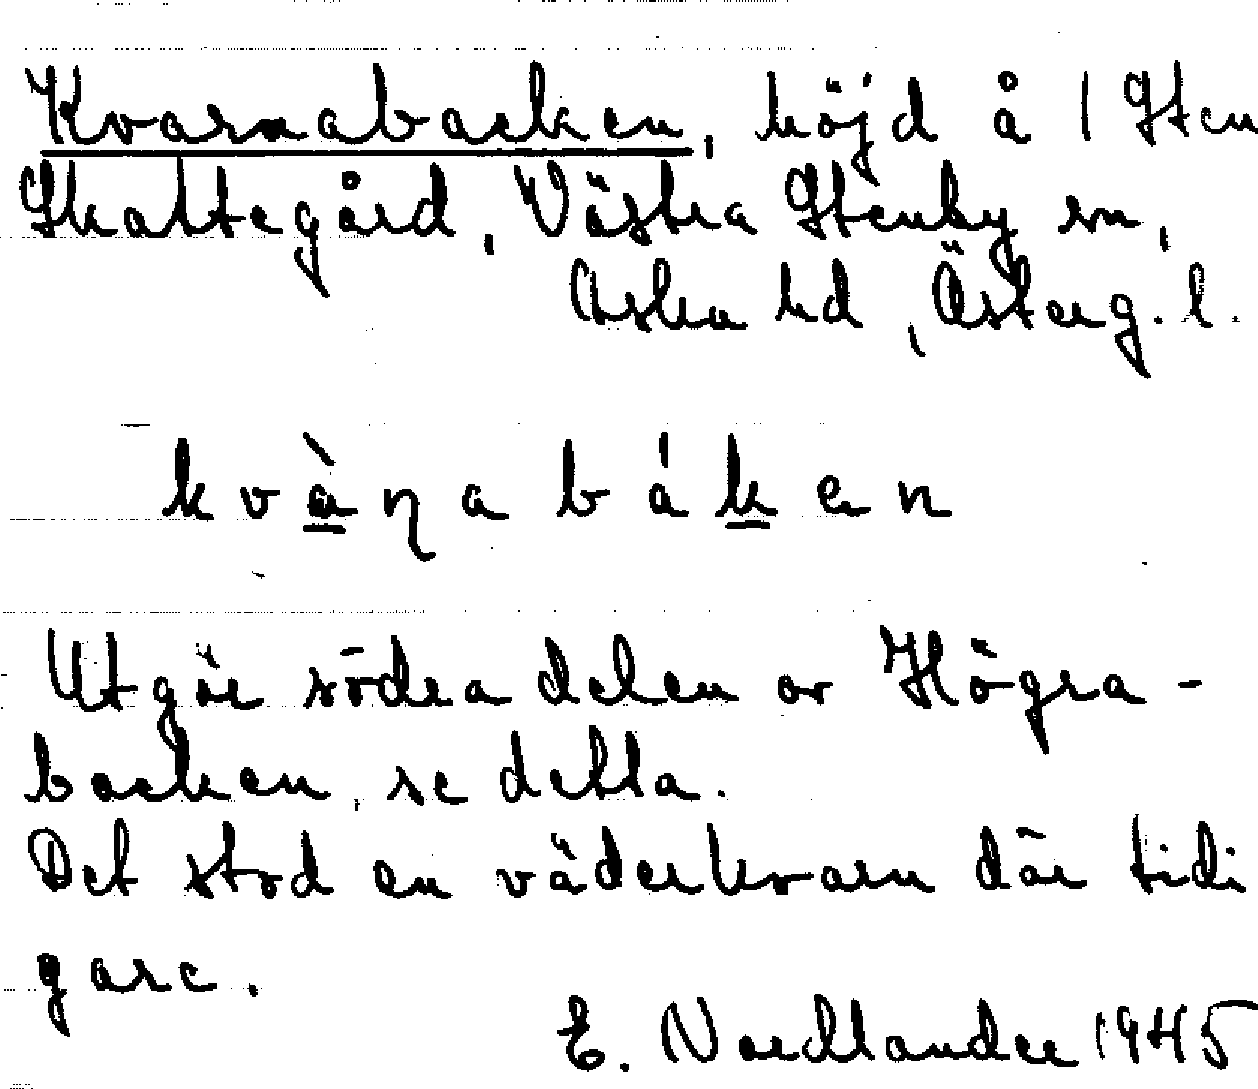 Kvarnabacken, höjd å 1 Sten
Skattegård, Västra Stenby sn,
Aska hd, Österg. l.
kvàṇabáken
Utgör södra delen av Högra-
backen, se detta.
Det stod en väderkvarn där tidi
gare.
E. Nordlander 1945